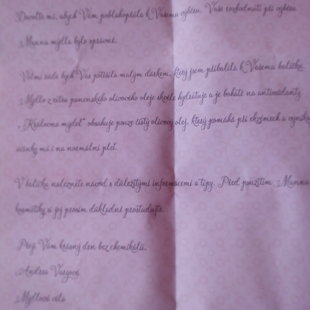 Dovolte mi, abych Vám poblahopřála k Vašemu výběru. Vaše rozhodnutí při výběru
Manna mýdla bylo správné.
Velmi ráda bych Vás potěšila malým dárkem, který jsem přibalila k Vašemu balíčku.
Mýdlo z extra panenského olivového oleje skvěle hydratuje a je bohaté na antioxidanty.
"Královna mýdel" obsahuje pouze čistý olivový olej, který pomáhá při ekzémech a
účinky má i na normální pleť.
V balíčku naleznete návod s důležitými informacemi a tipy. Před použitím Manna
kosmetiky si jej prosím důkladně prostudujte.
Přeji Vám krásný den bez chemikálií.
Andrea
Mýdlová víla